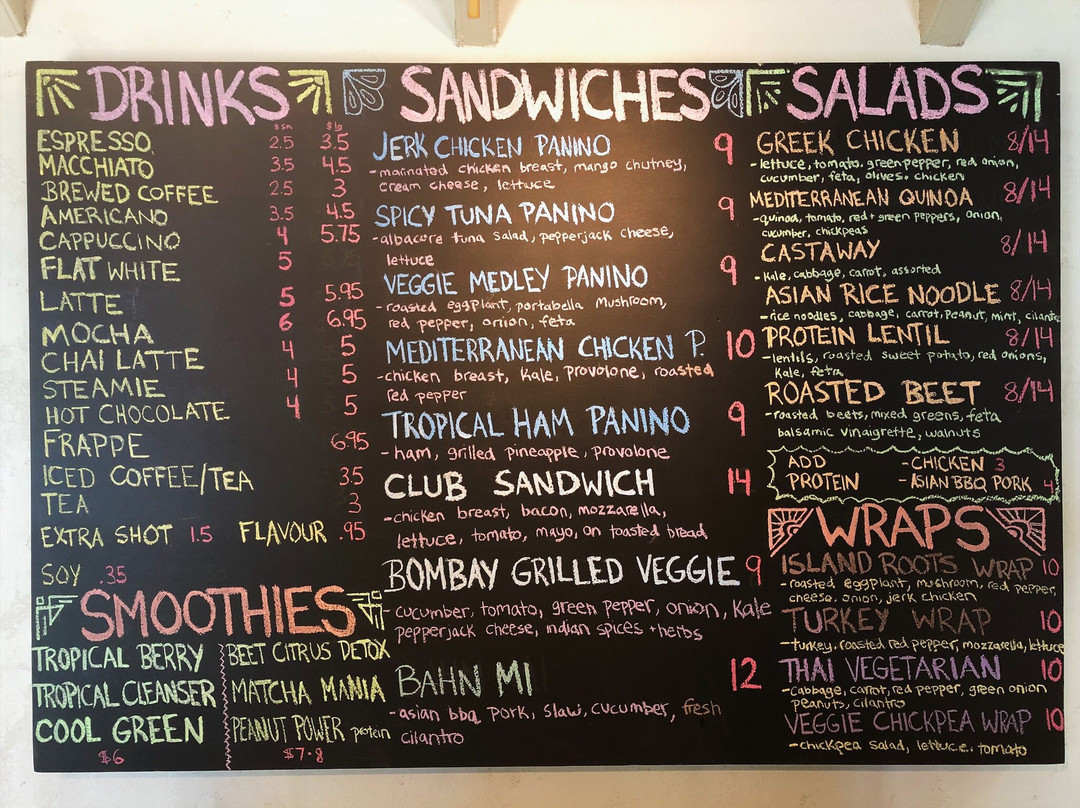 DRINKS
$sm $lg
ESPRESSO 2.5 3.5
MACCHIATO 3.5 4.5
BREWED COFFEE 2.5 3
AMERICANO 3.5 4.5
CAPPUCCINO 4 5.75
FLAT WHITE 5
LATTE 5 5.95
MOCHA 6 6.95
CHAI LATTE 4 5
STEAMIE 4 5
HOT CHOCOLATE 4 5
FRAPPE 6.95
ICED COFFEE/TEA 3.5
TEA 3
EXTRA SHOT 1.5 FLAVOUR .95
SOY .35
SMOOTHIES
TROPICAL BERRY
TROPICAL CLEANSER
COOL GREEN
$6
BEET CITRUS DETOX
MATCHA MANIA
PEANUT POWER protein
$7.8
SANDWICHES
JERK CHICKEN PANINO 9
-marinated chicken breast, mango chutney,
cream cheese, lettuce
SPICY TUNA PANINO 9
-albacore tuna salad, pepperjack cheese,
lettuce
VEGGIE MEDLEY PANINO 9
-roasted eggplant, portabella mushroom,
red pepper, onion, feta
MEDITERRANEAN CHICKEN P. 10
-chicken breast, kale, provolone, roasted
red pepper
TROPICAL HAM PANINO 9
-ham, grilled pineapple, provolone
CLUB SANDWICH 14
-chicken breast, bacon, mozzarella,
lettuce, tomato, mayo, on toasted bread
BOMBAY GRILLED VEGGIE 9
-cucumber, tomato, green pepper, onion, kale
pepperjack cheese, indian spices + herbs
BAHN MI 12
-asian bbq pork, slaw, cucumber, fresh
cilantro
SALADS
GREEK CHICKEN 8/14
-lettuce, tomato, green pepper, red onion,
cucumber, feta, olives, chicken
MEDITERRANEAN QUINOA 8/14
-quinoa, tomato, red + green peppers, onion,
cucumber, chickpeas
CASTAWAY 8/14
-kale, cabbage, carrot, assorted
ASIAN RICE NOODLE 8/14
-rice noodles, cabbage, carrot, peanut, mint, cilantro
PROTEIN LENTIL 8/14
-lentils, roasted sweet potato, red onions,
kale, feta
ROASTED BEET 8/14
-roasted beets, mixed greens, feta
balsamic vinaigrette, walnuts
ADD PROTEIN
-CHICKEN 3
-ASIAN BBQ PORK 4
WRAPS
ISLAND ROOTS WRAP 10
-roasted eggplant, mushroom, red pepper,
cheese, onion, jerk chicken
TURKEY WRAP 10
-turkey, roasted red pepper, mozzarella, lettuce
THAI VEGETARIAN 10
-cabbage, carrot, red pepper, green onion
peanuts, cilantro
VEGGIE CHICKPEA WRAP 10
-chickpea salad, lettuce, tomato